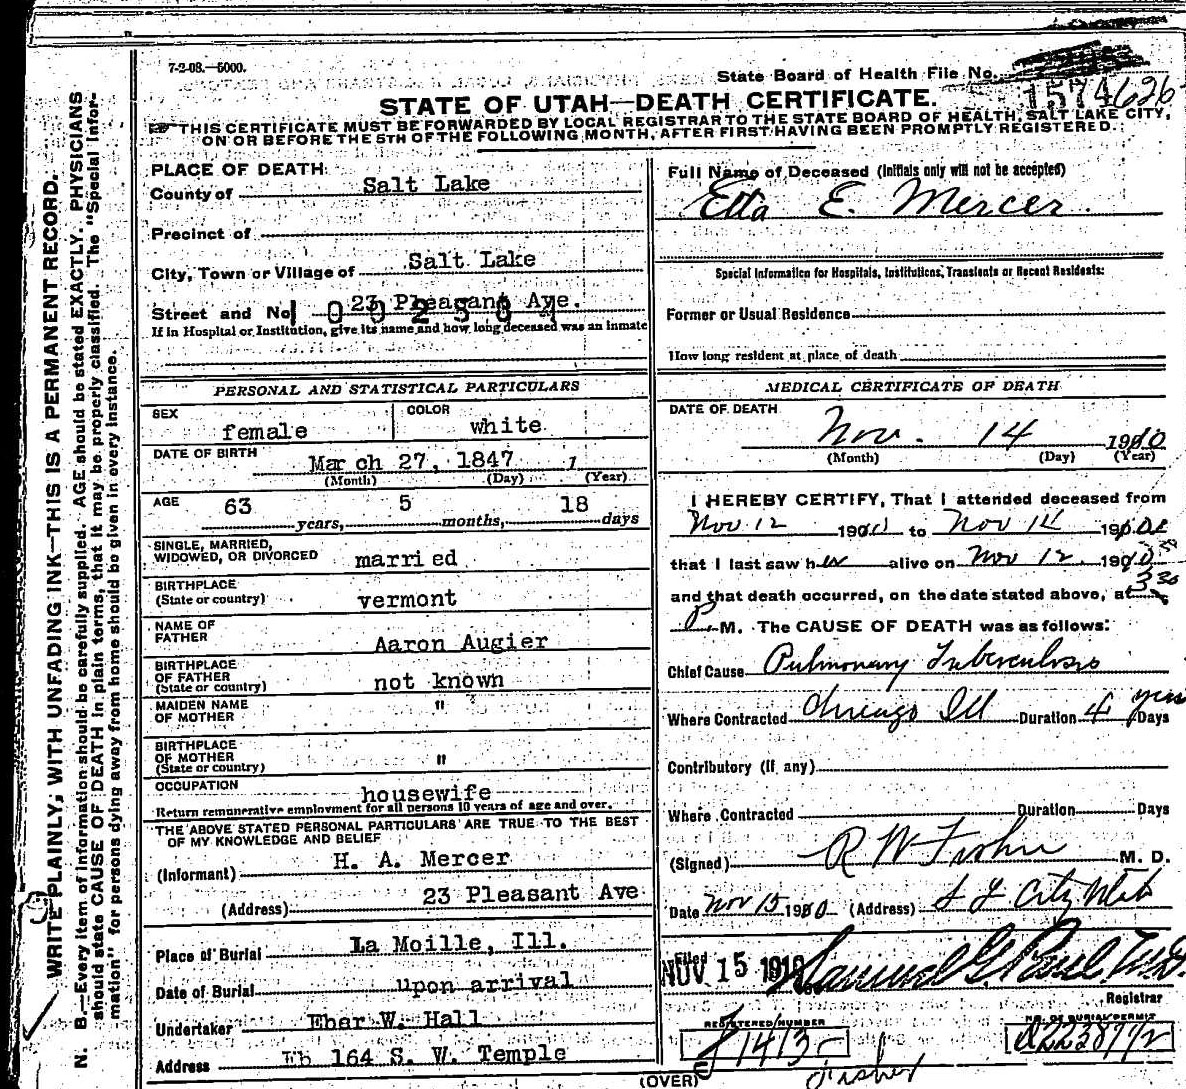 7-2-08.—5000.
State Board of Health File No.
1574626
STATE OF UTAH—DEATH CERTIFICATE.
THIS CERTIFICATE MUST BE FORWARDED BY LOCAL REGISTRAR TO THE STATE BOARD OF HEALTH, SALT LAKE CITY,
ON OR BEFORE THE 5TH OF THE FOLLOWING MONTH, AFTER FIRST HAVING BEEN PROMPTLY REGISTERED.
WRITE PLAINLY, WITH UNFADING INK—THIS IS A PERMANENT RECORD.
N. B.—Every item of information should be carefully supplied. AGE should be stated EXACTLY. PHYSICIANS
should state CAUSE OF DEATH in plain terms, that it may be properly classified. The "Special Infor-
mation" for persons dying away from home should be given in every instance.
PLACE OF DEATH:
County of Salt Lake
Precinct of
City, Town or Village of Salt Lake
Street and No. 23 Pleasant Ave.
If in Hospital or Institution, give its name and how long deceased was an inmate
PERSONAL AND STATISTICAL PARTICULARS
SEX female
COLOR white
DATE OF BIRTH March 27, 1847
(Month) (Day) (Year)
AGE 63 years, 5 months, 18 days
SINGLE, MARRIED,
WIDOWED, OR DIVORCED married
BIRTHPLACE
(State or country) vermont
NAME OF
FATHER Aaron Augier
BIRTHPLACE
OF FATHER
(State or country) not known
MAIDEN NAME
OF MOTHER "
BIRTHPLACE
OF MOTHER
(State or country) "
OCCUPATION housewife
Return remunerative employment for all persons 10 years of age and over.
THE ABOVE STATED PERSONAL PARTICULARS ARE TRUE TO THE BEST
OF MY KNOWLEDGE AND BELIEF
(Informant) H. A. Mercer
(Address) 23 Pleasant Ave
Place of Burial La Moille, Ill.
Date of Burial upon arrival
Undertaker Eber W. Hall
Address 164 S. W. Temple
Full Name of Deceased (Initials only will not be accepted)
Etta E. Mercer
Special Information for Hospitals, Institutions, Transients or Recent Residents:
Former or Usual Residence
How long resident at place of death
MEDICAL CERTIFICATE OF DEATH
DATE OF DEATH
Nov. 14 1910
(Month) (Day) (Year)
I HEREBY CERTIFY, That I attended deceased from
Nov 12 1910 to Nov 14 1910
that I last saw her alive on Nov 12. 1910
and that death occurred, on the date stated above, at 3 30
P. M. The CAUSE OF DEATH was as follows:
Chief Cause Pulmonary Tuberculosis
Where Contracted Chicago Ill Duration 4 years Days
Contributory (if any)
Where Contracted Duration Days
(Signed) R W Fisher M. D.
Date Nov 15 1910 (Address) S L City Utah
Filed NOV 15 1910 Samuel G. Paul M.D.
Registrar
REGISTERED NUMBER
1413
NO. OF BURIAL PERMIT
Fisher
(OVER)